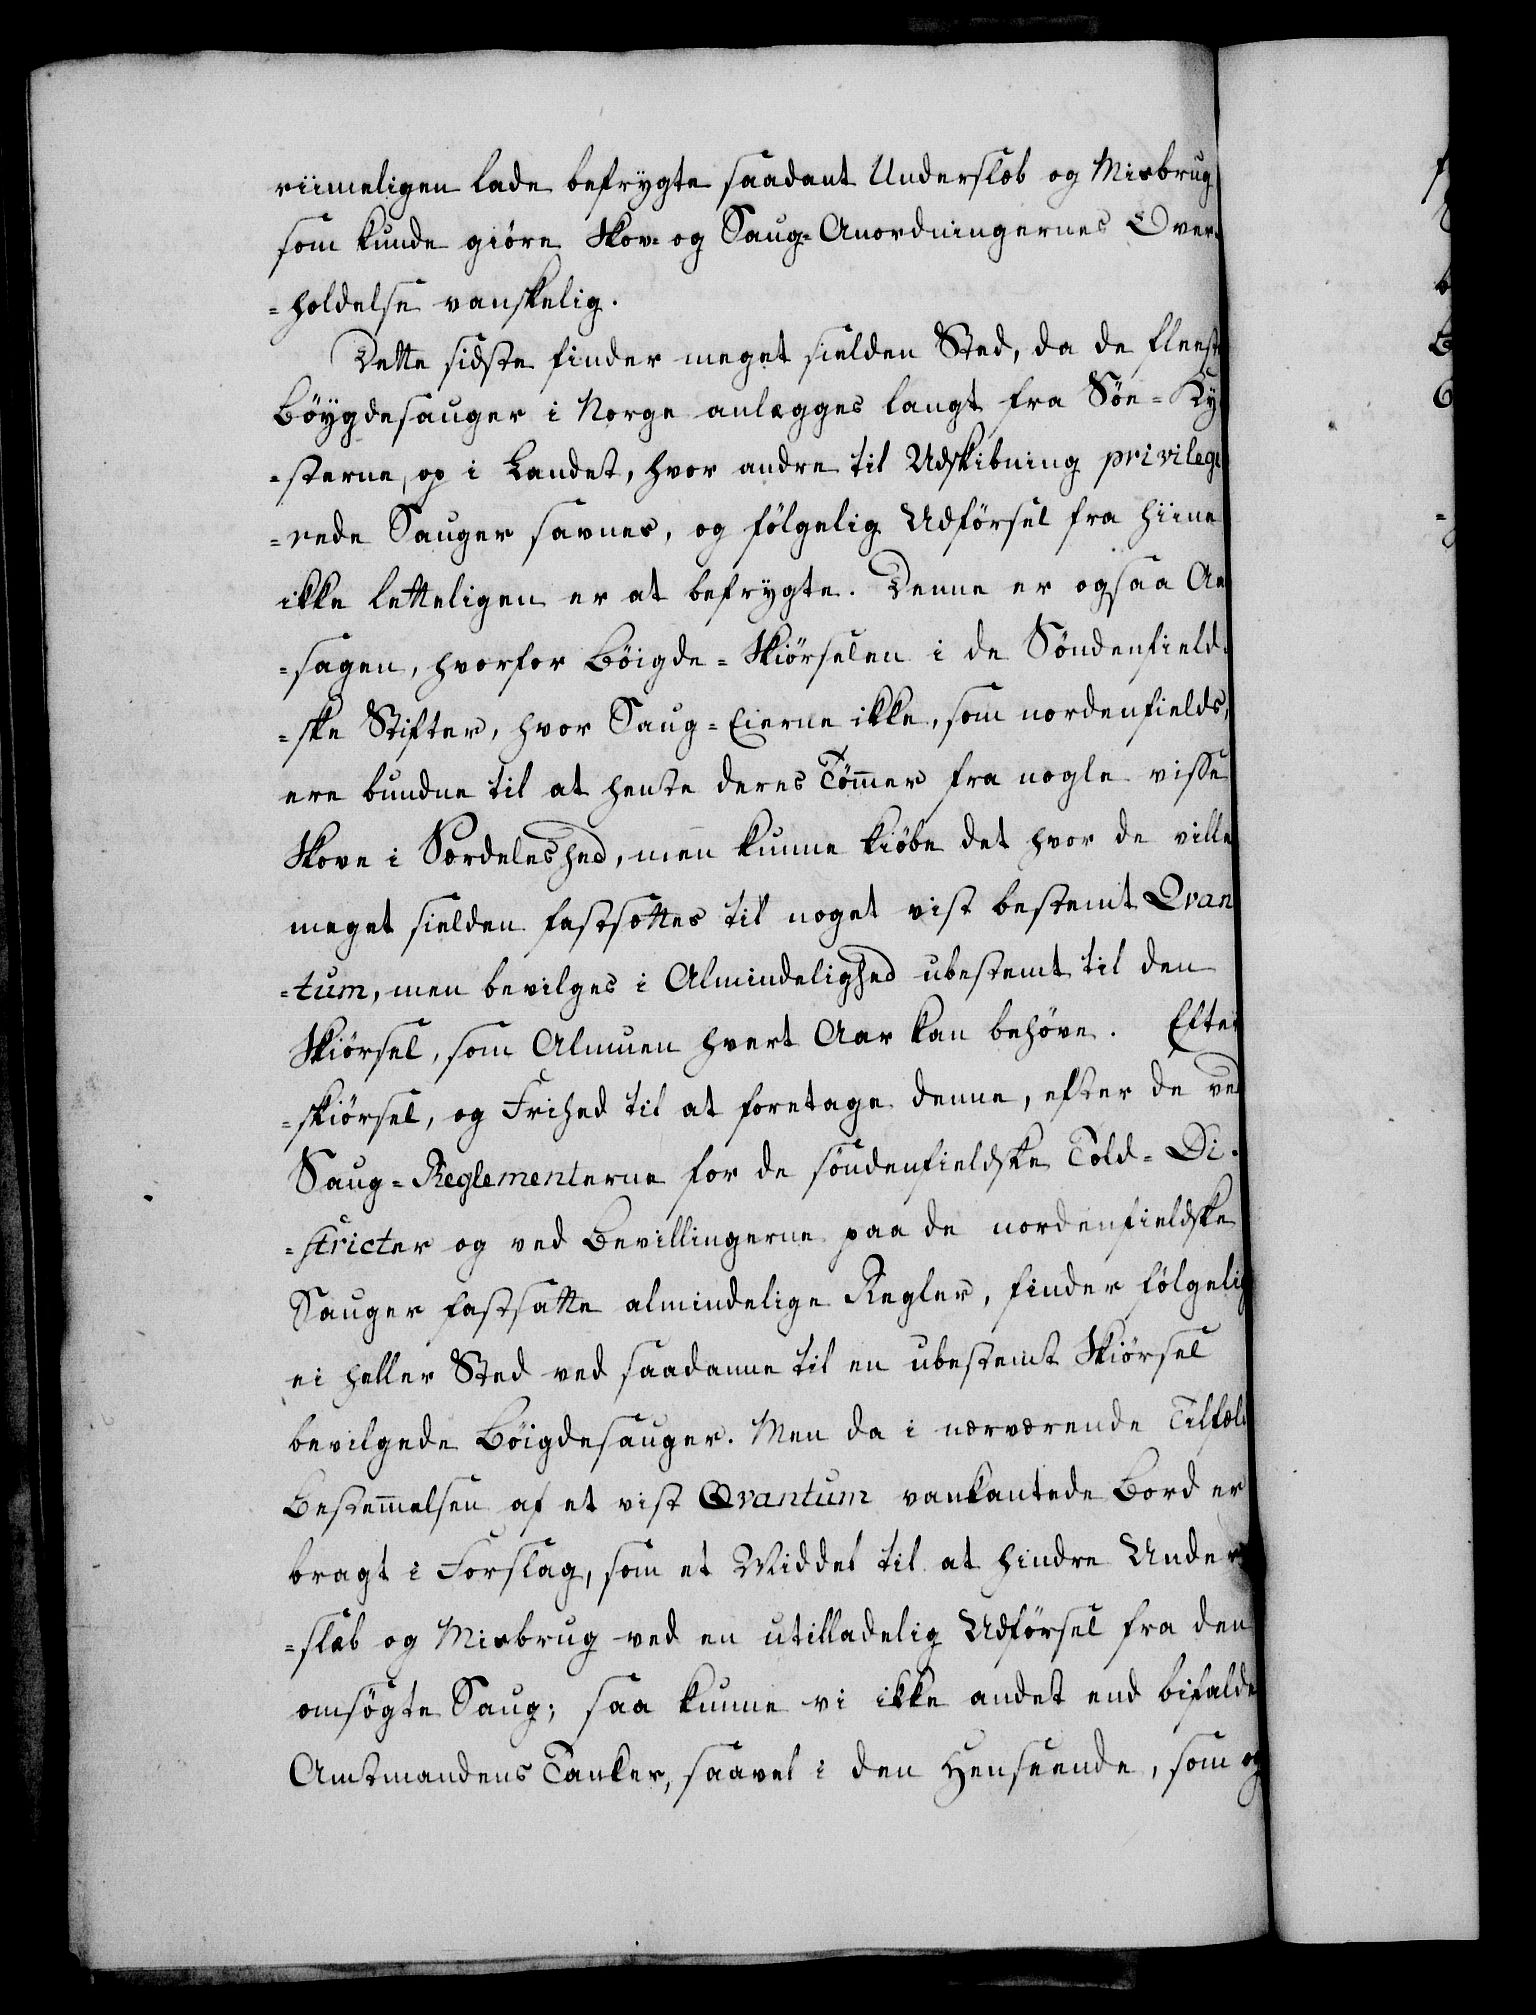 riimeligen lade befrygte saadant Underslæb og Misbrug
som kunde giöre Skov- og Saug-Anordningernes Over-
-holdelse vanskelig.
Dette sidste finder meget sielden Sted, da de fleeste
Böygdesauger i Norge anlægges langt fra Söe-Ky
-sterne, op i Landet, hvor andre til Udskibning privilege
-rede Sauger savnes, og fölgelig Udförsel fra hiine
ikke letteligen er at befrygte. Denne er ogsaa Aar
-sagen, hvorfor Böigde-Skiörselen i de Söndenfield-
-ske Stifter, hvor Saug-Eierne ikke, som nordenfields,
ere bundne til at hente deres Tömmer fra nogle visse
Skove i Særdeleshed, men kunne kiöbe det hvor de ville
meget sielden fastsættes til noget vist bestemt Qvan
-tum, men bevilges i Almindelighed ubestemt til den
Skiörsel, som Almuen hvert Aar kan behöve. Efter
-skiörsel, og Frihed til at foretage denne, efter de ved
Saug-Reglementerne for de söndenfieldske Told-Di-
-stricter og ved Bevillingerne paa de nordenfieldske
Sauger fastsatte almindelige Regler, finder fölgelig
ei heller Sted ved saadanne til en ubestemt Skiörsel
bevilgede Böigdesauger. Men da i nærværende Tilfæld
Bestemmelsen af et vist Qvantum vankantede Bord er
bragt i Forslag, som et Middel til at hindre Under
-slæb og Misbrug ved en utilladelig Udförsel fra den
omsögte Saug; saa kunne vi ikke andet end bifalde
Amtmandens Tanker, saavel i den Henseende, som og